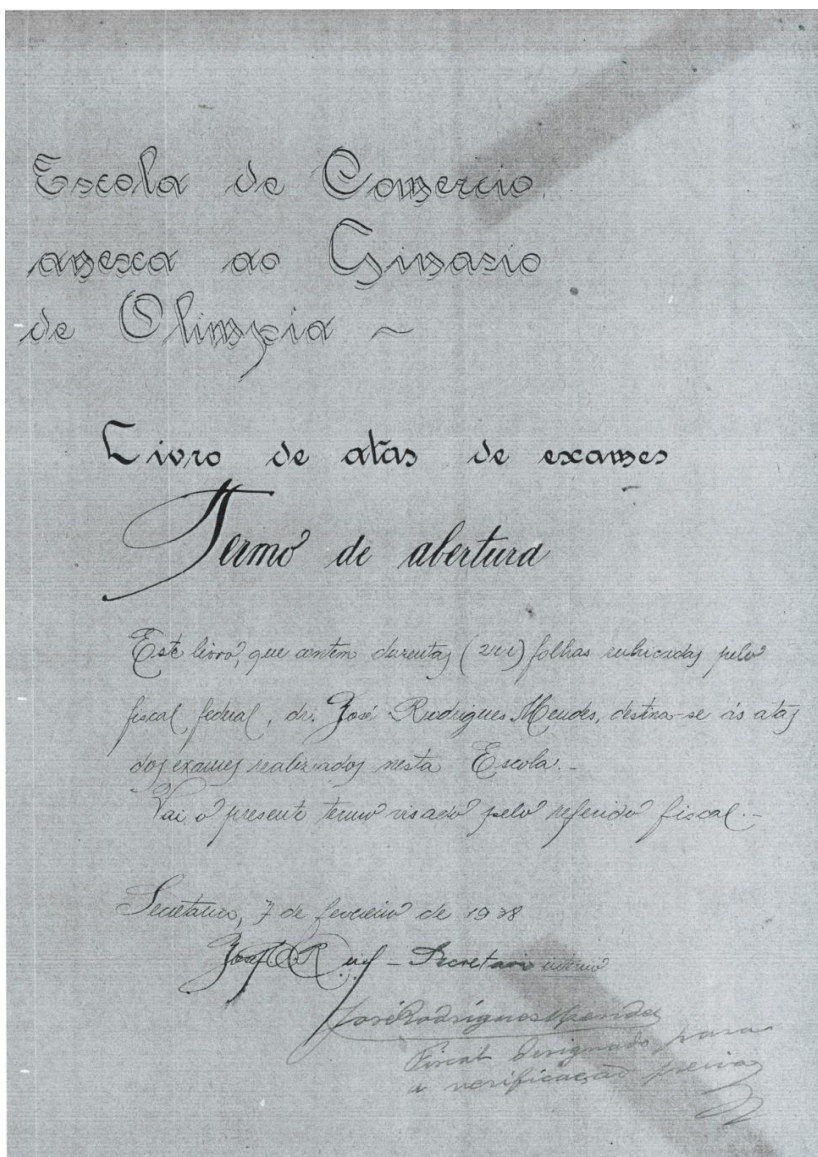 Escola de Comercio
anexa ao Ginasio
de Olimpia ~
Livro de atas de exames
Termo de abertura
Este livro, que contem duzentas (200) folhas rubricadas pelo
fiscal federal, dr. José Rodrigues Mendes, destina-se ás atas
dos exames realizados nesta Escola.-
Vai o presente termo visado pelo referido fiscal.-
Secretaria, 7 de fevereiro de 1938
- Secretario interino
José Rodrigues Mendes
Fiscal designado para
a verificação previa